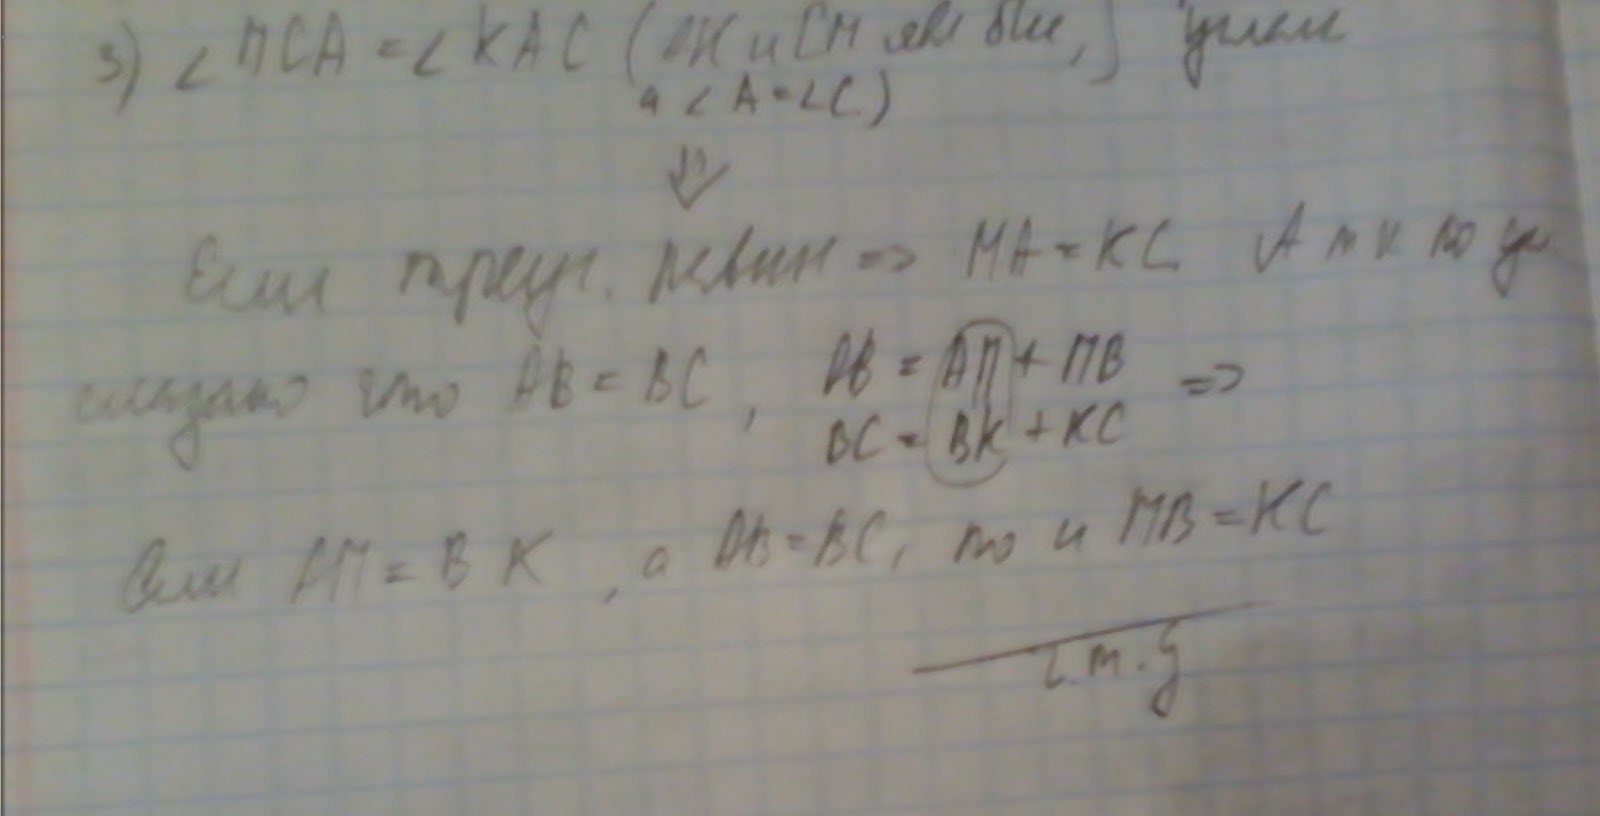 3) < MCA = < KAC (AK и CM явл бис,) углам
а < A = < C)
⇓
Если треуг. равны => MA = KC А т к по ус
сказано что AB = BC, AB = AM + MB =>
BC = BK + KC
Если AM = B K, а AB = BC, то и MB = KC
ч.т.д